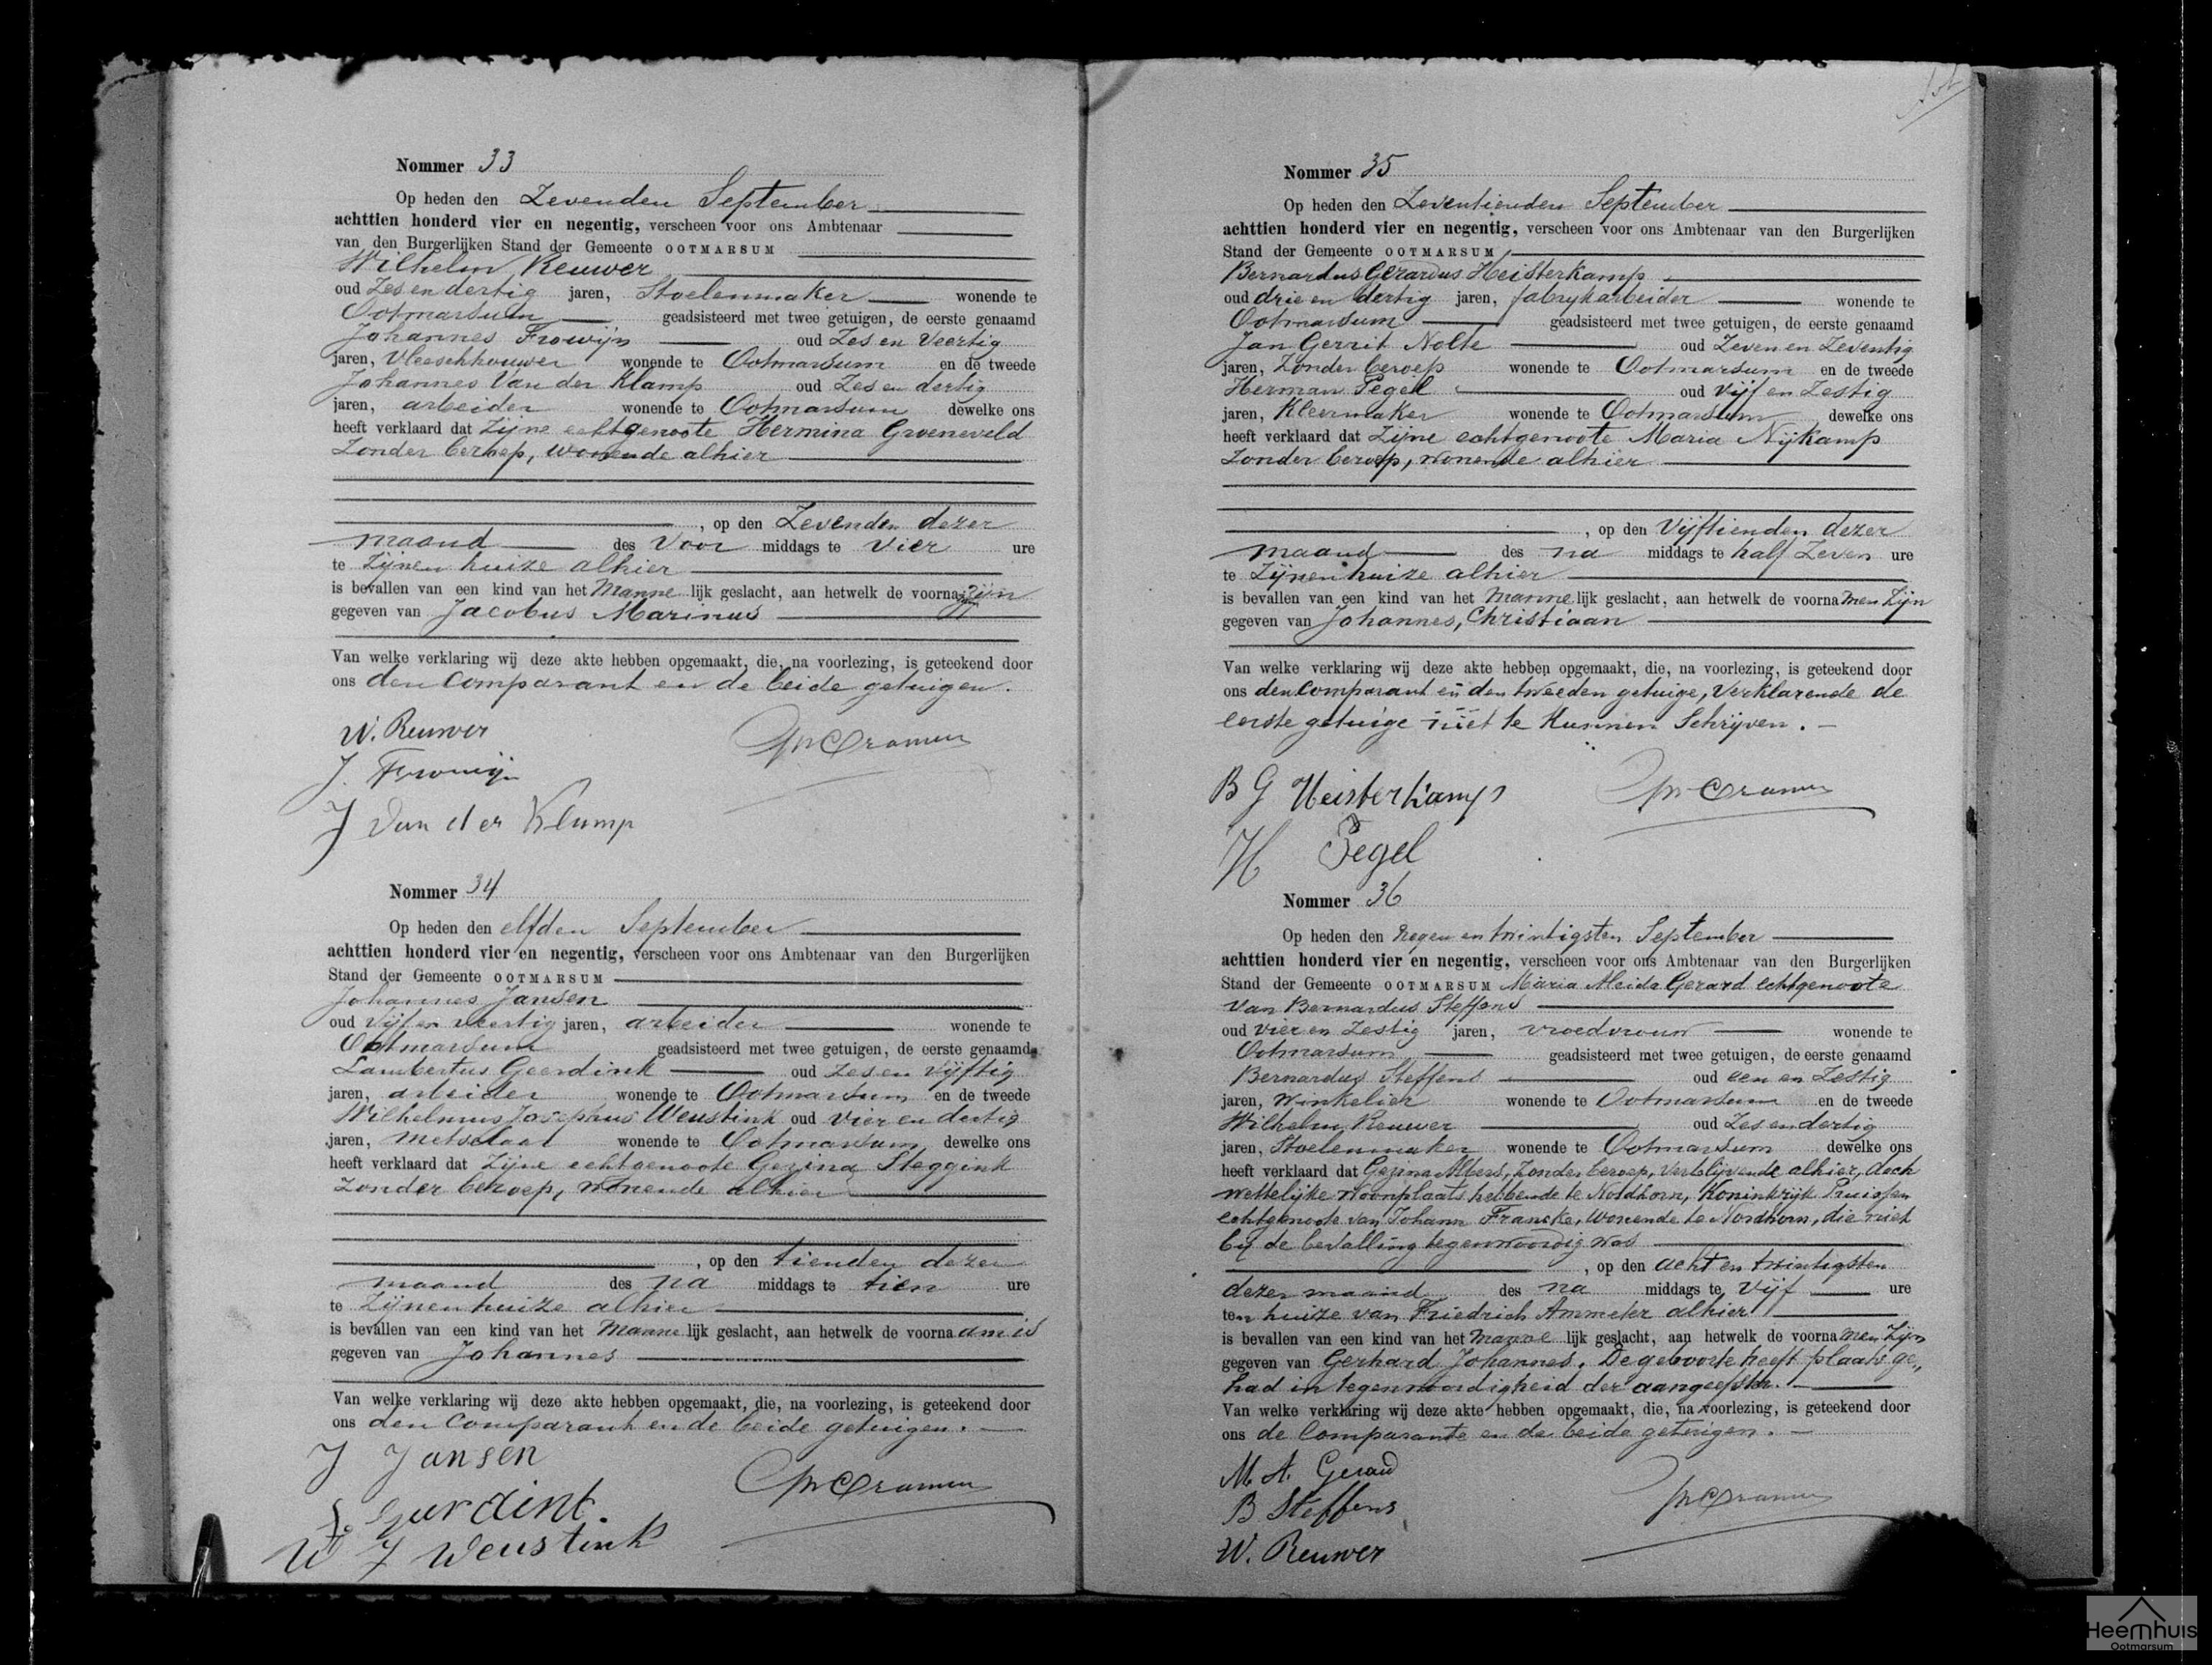 Nommer 33
Op heden den Zevenden September
achttien honderd vier en negentig, verscheen voor ons Ambtenaar
van den Burgerlijken Stand der Gemeente OOTMARSUM
Wilhelm Reuwer
oud Zes en dertig jaren, Stoelenmaker wonende te
Ootmarsum geadsisteerd met twee getuigen, de eerste genaamd
Johannes Frowijn oud Zes en Veertig
jaren, Vleeschhouwer wonende te Ootmarsum en de tweede
Johannes Van der Klamp oud Zes en dertig
jaren, arbeider wonende te Ootmarsum dewelke ons
heeft verklaard dat Zijne echtgenoote Hermina Groeneveld
Zonder beroep, wonende alhier
, op den Zevenden dezer
maand des Voor middags te Vier ure
te Zijnen huize alhier
is bevallen van een kind van het Manne lijk geslacht, aan hetwelk de voorna zijn
gegeven van Jacobus Marinus
Van welke verklaring wij deze akte hebben opgemaakt, die, na voorlezing, is geteekend door
ons den Comparant en de beide getuigen.
W. Reuwer
J. Frowijn
J Van der Klump
Nommer 34
Op heden den elfden September
achttien honderd vier en negentig, verscheen voor ons Ambtenaar van den Burgerlijken
Stand der Gemeente OOTMARSUM
Johannes Jansen
oud Vijf en veertig jaren, arbeider wonende te
Ootmarsum geadsisteerd met twee getuigen, de eerste genaamd
Lambertus Geerdink oud Zes en Vijftig
jaren, arbeider wonende te Ootmarsum en de tweede
Wilhelmus Josephus Weustink oud Vier en dertig
jaren, Metselaar wonende te Ootmarsum dewelke ons
heeft verklaard dat Zijne echtgenoote Gezina Steggink
Zonder beroep, wonende alhier
, op den tienden dezer
maand des na middags te tien ure
te Zijnen huize alhier
is bevallen van een kind van het Manne lijk geslacht, aan hetwelk de voorna am is
gegeven van Johannes
Van welke verklaring wij deze akte hebben opgemaakt, die, na voorlezing, is geteekend door
ons den Comparant en de beide getuigen.
J Jansen
W J Weustink
Nommer 35
Op heden den Zeventienden September
achttien honderd vier en negentig, verscheen voor ons Ambtenaar van den Burgerlijken
Stand der Gemeente OOTMARSUM
Bernardus Gerardus Heisterkamp
oud drie en dertig jaren, fabrykarbeider wonende te
Ootmarsum geadsisteerd met twee getuigen, de eerste genaamd
Jan Gerrit Nolte oud Zeven en Zeventig
jaren, Zonder beroep wonende te Ootmarsum en de tweede
Herman Pegel oud Vijf en Zestig
jaren, Kleermaker wonende te Ootmarsum dewelke ons
heeft verklaard dat Zijne echtgenoote Maria Nijkamp
Zonder beroep, wonende alhier
, op den Vijftienden dezer
maand des na middags te half Zeven ure
te Zijnen huize alhier
is bevallen van een kind van het Manne lijk geslacht, aan hetwelk de voorna men Zijn
gegeven van Johannes, Christiaan
Van welke verklaring wij deze akte hebben opgemaakt, die, na voorlezing, is geteekend door
ons den Comparant en den tweeden getuige, Verklarende de
eerste getuige niet te Kunnen Schrijven.
B G Heisterkamp
H Pegel
Nommer 36
Op heden den Negen en twintigsten September
achttien honderd vier en negentig, verscheen voor ons Ambtenaar van den Burgerlijken
Stand der Gemeente OOTMARSUM Maria Aleida Gerard echtgenoote
Van Bernardus Steffens
oud Vier en Zestig jaren, Vroedvrouw wonende te
Ootmarsum geadsisteerd met twee getuigen, de eerste genaamd
Bernardus Steffens oud een en Zestig
jaren, Winkelier wonende te Ootmarsum en de tweede
Wilhelm Reuwer oud Zes en dertig
jaren, Stoelenmaker wonende te Ootmarsum dewelke ons
heeft verklaard dat Gezina Albers, Zonder beroep, Verblijvende alhier, doch
wettelijke Woonplaats hebbende te Nordhorn, Koninkrijk Pruissen
echtgenoote van Johann Francke, Wonende te Nordhorn, die niet
bij de bevalling tegenwoordig was
, op den acht en twintigsten
dezer maand des na middags te Vijf ure
ten huize van Friedrich Ammeter alhier
is bevallen van een kind van het Manne lijk geslacht, aan hetwelk de voorna men Zijn
gegeven van Gerhard Johannes. De geboorte heeft plaats ge„
had in tegenwoordigheid der aangeefster.
Van welke verklaring wij deze akte hebben opgemaakt, die, na voorlezing, is geteekend door
ons de Comparante en de beide getuigen.
M. A. Gerard
B Steffens
W. Reuwer
Heemhuis
Ootmarsum